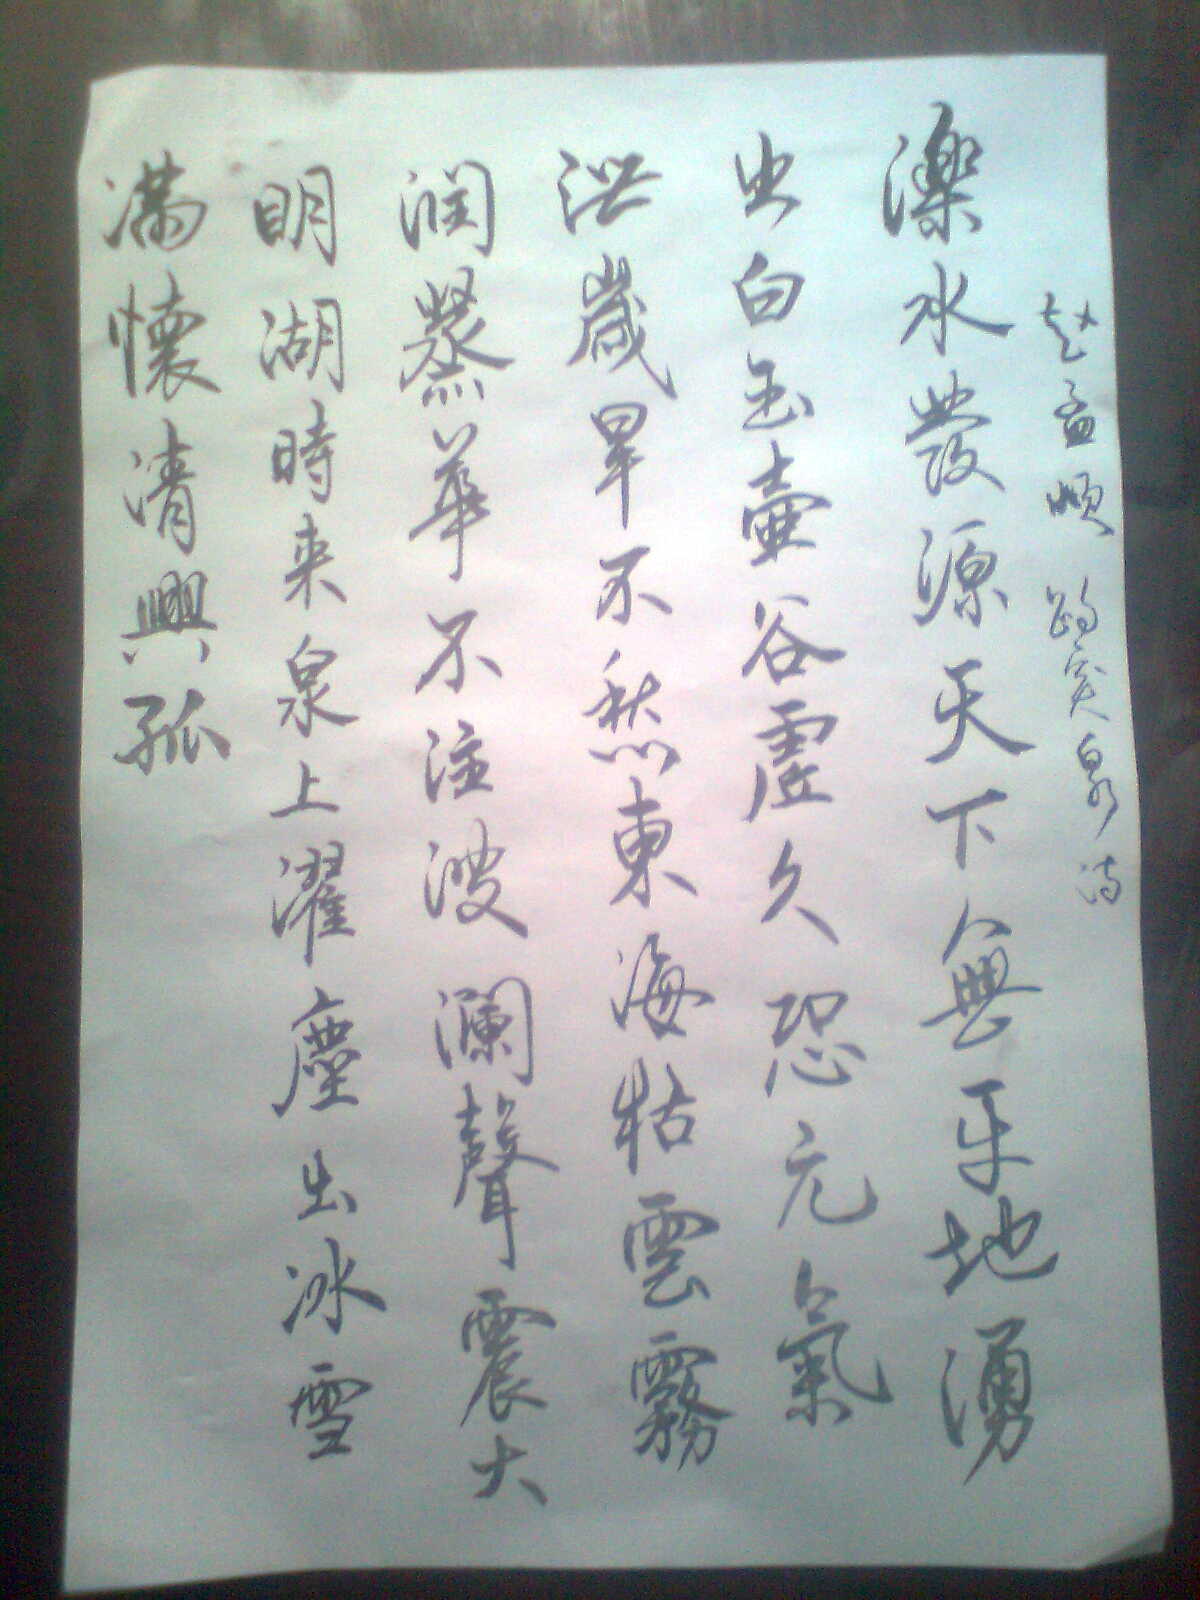 赵孟頫 趵突泉诗
濼水發源天下無平地湧
出白玉壺谷虛久恐元氣
泄歲旱不愁東海枯雲霧
润蒸華不注波瀾聲震大
明湖時来泉上濯塵出冰雪
滿懷清興孤